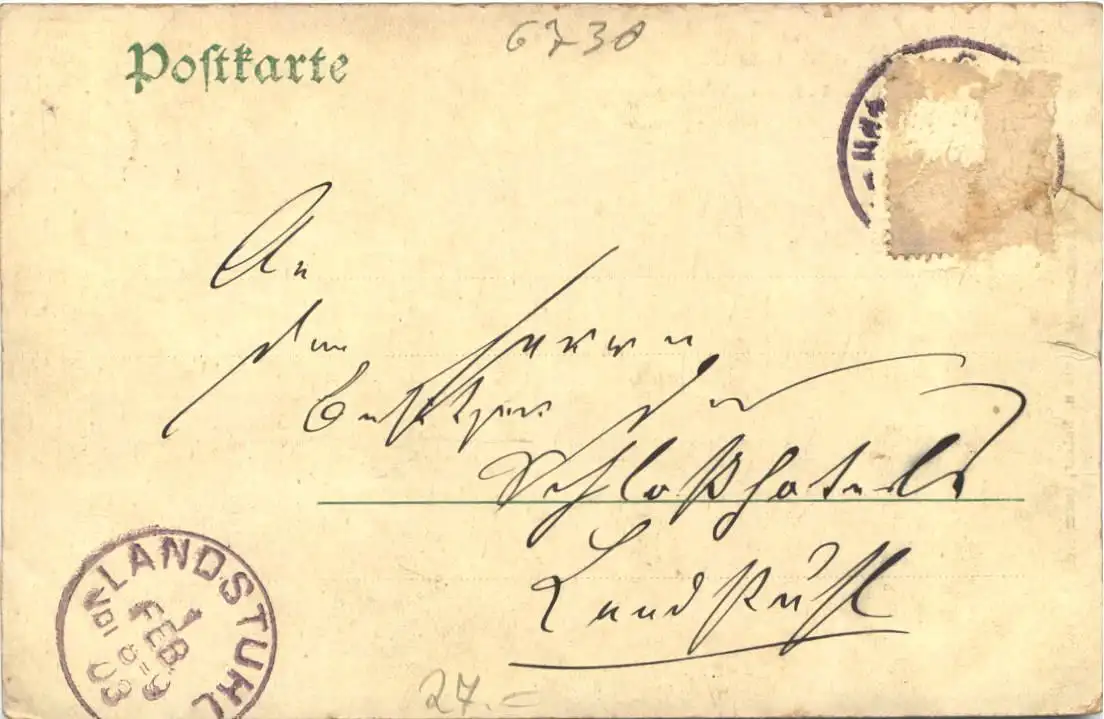 6730
Postkarte
An
den Herrn
Besitzer des
Schloßhotels
Landstuhl
LANDSTUHL
1
FEB.
8-9
VOR
03
27.=